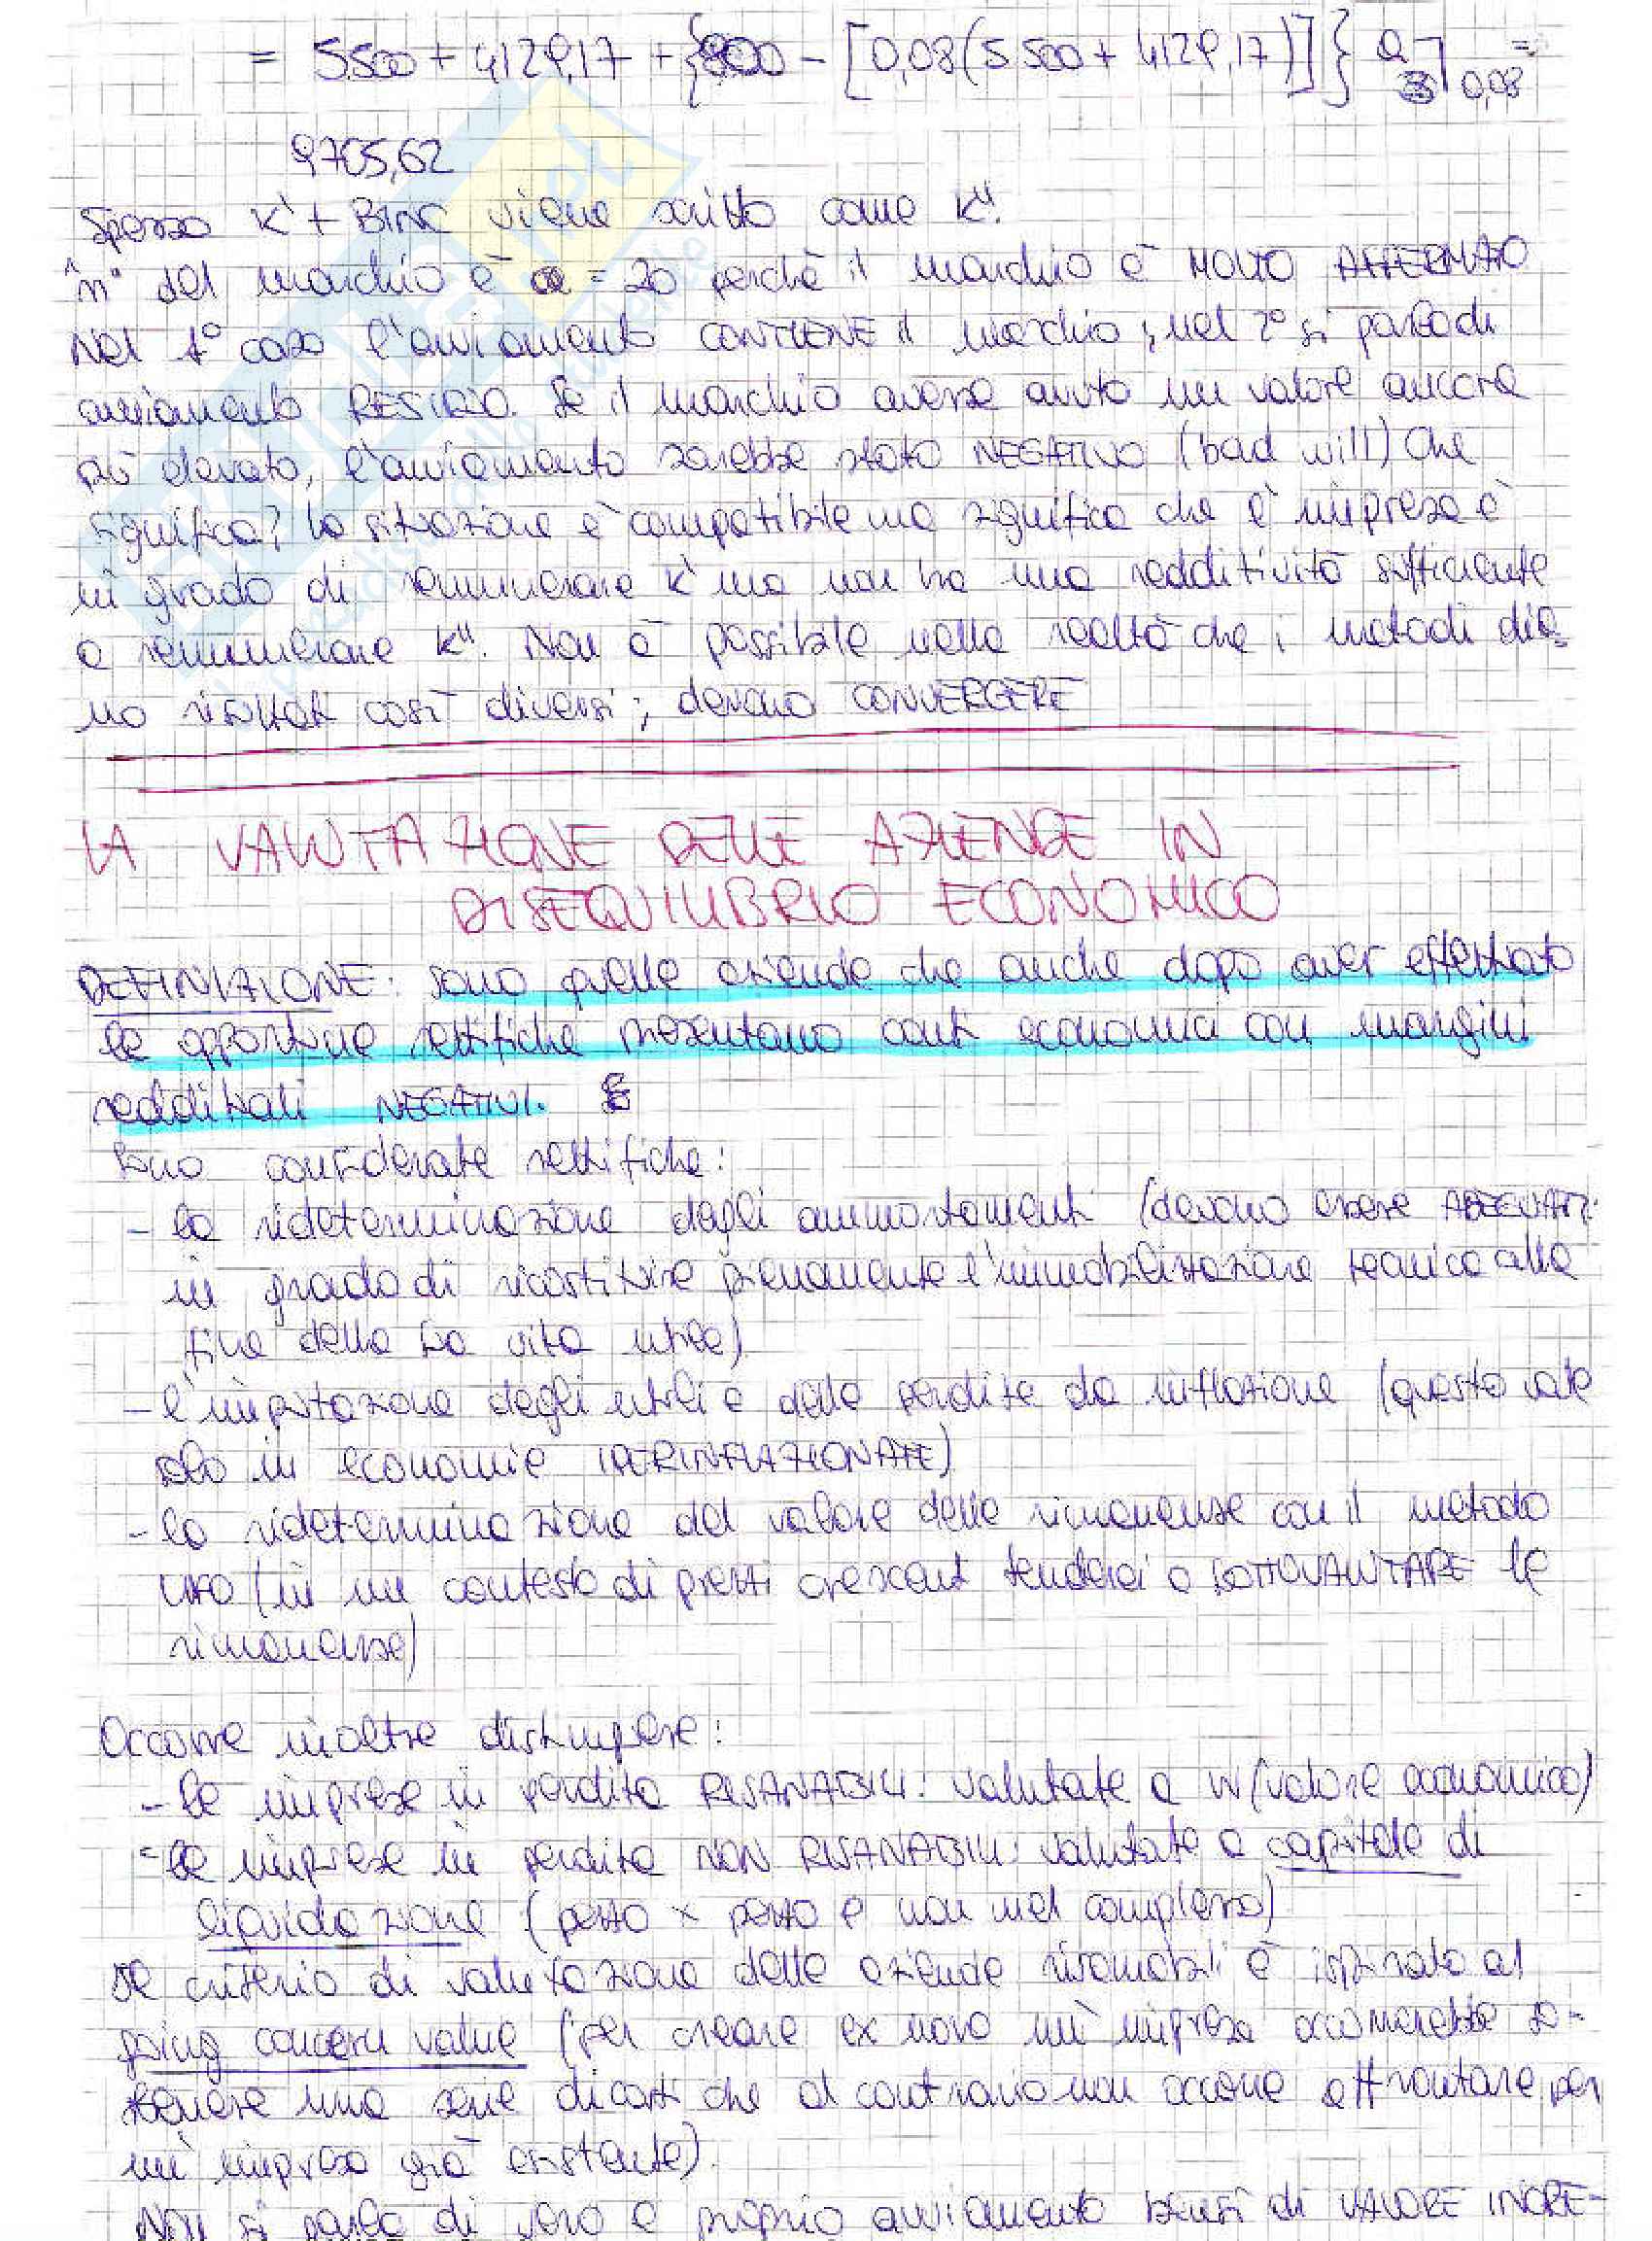 = 5.500 + 4129,17 + {800 - [0,08(5.500 + 4129,17)]} a 3⌉ 0,08 =
9705,62
Spesso K' + BINC viene scritto come K''.
"n" del marchio è = 20 perchè il marchio è MOLTO AFFERMATO
Nel 1° caso l'avviamento CONTIENE il marchio, nel 2° si parla di
avviamento RESIDUO. Se il marchio avesse avuto un valore ancora
più elevato, l'avviamento sarebbe stato NEGATIVO (bad will) Che
significa? la situazione è compatibile ma significa che l'impresa è
in grado di remunerare K' ma non ha una redditività sufficiente
a remunerare K''. Non è possibile nella realtà che i metodi dia_
no risultati così diversi; devono CONVERGERE
LA VALUTAZIONE DELLE AZIENDE IN
DISEQUILIBRIO ECONOMICO
DEFINIZIONE: sono quelle aziende che anche dopo aver effettuato
le opportune rettifiche presentano conti economici con margini
reddituali NEGATIVI.
Sono considerate rettifiche:
- la rideterminazione degli ammortamenti (devono essere ADEGUATI:
in grado di ricostituire pienamente l'immobilizzazione tecnica alla
fine della sua vita utile)
- l'imputazione degli utili e delle perdite da inflazione (questo vale
solo in economie IPERINFLAZIONATE)
- la rideterminazione del valore delle rimanenze con il metodo
LIFO (in un contesto di prezzi crescenti tenderei a SOTTOVALUTARE le
rimanenze)
Occorre inoltre distinguere:
- le imprese in perdita RISANABILI: valutate a W (valore economico)
- le imprese in perdita NON RISANABILI: valutate a capitale di
liquidazione (pezzo x pezzo e non nel complesso)
Il criterio di valutazione delle aziende risanabili è ispirato al
going concern value (per creare ex novo un'impresa occorrerebbe so-
stenere una serie di costi che al contrario non occorre affrontare per
un'impresa già esistente).
Non si parla di vero e proprio avviamento bensì di VALORE INDRE-